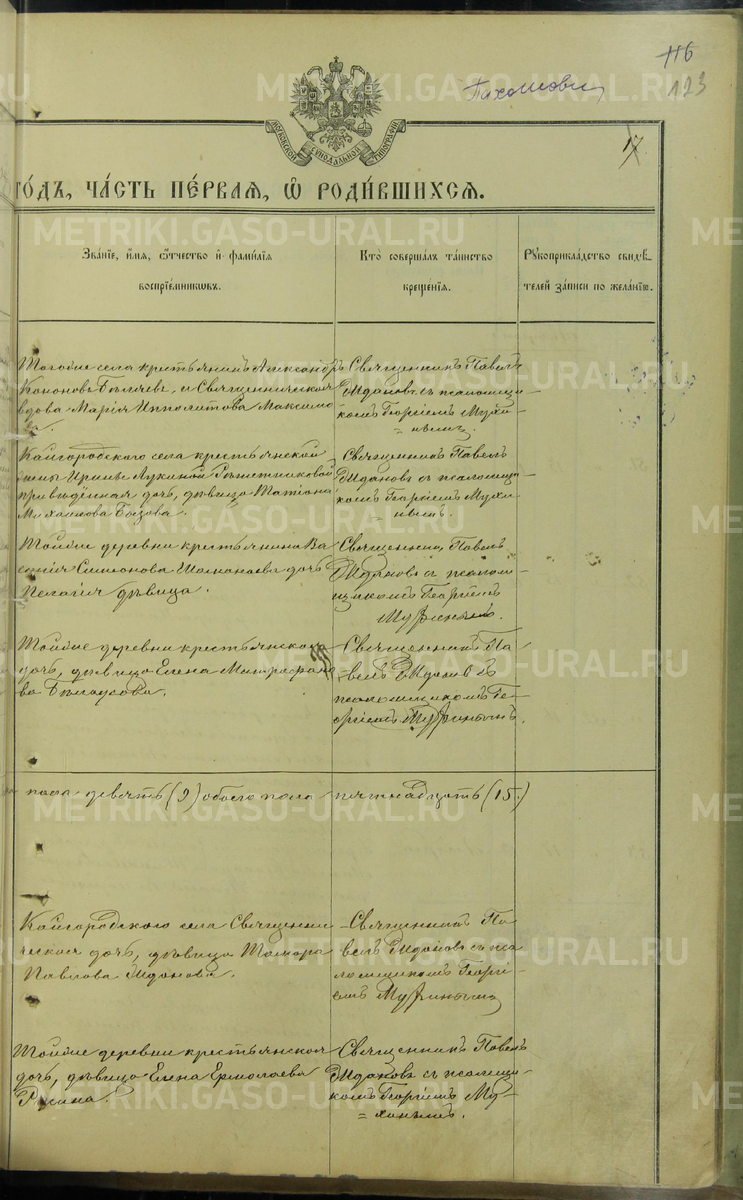 116
123
Тихомовы
МОСКОВСКОЙ СѴНОДАЛЬНОЙ ТИПОГРАФІИ
17
ГО́ДЪ, ЧА́СТЬ ПЕ́РВАЯ, Ѡ҆ РОДИ́ВШИХСЯ.
Зва́нїе, и҆́мя, ѻ҆́тчество и҆ фами́лїя
воспрїе́мникѡвъ.
Кто̀ соверша́лъ та́инство
креще́нїя.
Рꙋкоприкла́дство свидѣ́-
телей за́писи по жела́нїю.
Тогоже села крестьянинъ Александръ
Кононовъ Бѣляевъ, и Священническая
вдова Марія Ипполитова Максимо
ва.
Священникъ Павелъ
Ждановъ съ псаломщи-
комъ Георгіемъ Мухи-
нымъ.
Кайгородского села крестьянской
жены Ирины Лукиной Рѣшетниковой
привѣденная дочь, дѣвица Татіана
Михайлова Бызова.
Священникъ Павелъ
Ждановъ съ псаломщи-
комъ Георгіемъ Мухи-
нымъ.
Тойже деревни крестьянина Ва
силія Симонова дочь
Пелагія дѣвица.
Священникъ Павелъ
Ждановъ съ псалом-
щикомъ Георгіемъ
Мухинымъ.
Тойже деревни крестьянская
дочь, дѣвица Елена Митрофано
ва Бѣлоусова.
Священникъ Па-
велъ Ждановъ съ
псаломщикомъ Ге-
оргіемъ Мухинымъ.
пола девять (9) обоего пола пятнадцать (15.)
Кайгородского села Священни
ческая дочь, дѣвица Тамара
Павлова Жданова.
Священникъ Па
велъ Ждановъ съ пса
ломщикомъ Георгі-
емъ Мухинымъ
Тойже деревни крестьянская
дочь, дѣвица Елена Ермолаева
Священникъ Павелъ
Ждановъ съ псаломщи-
комъ Георгіемъ Му-
хинымъ.
METRIKI.GASO-URAL.RU